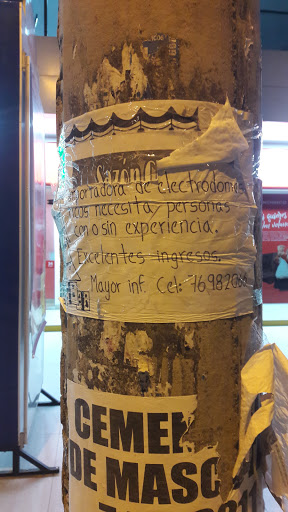 Sazón C
portadora de electrodomés
ticos necesita personas
con o sin experiencia.
Excelentes ingresos.
Mayor inf. Cel: 76982068
CEMEN
DE MASCO